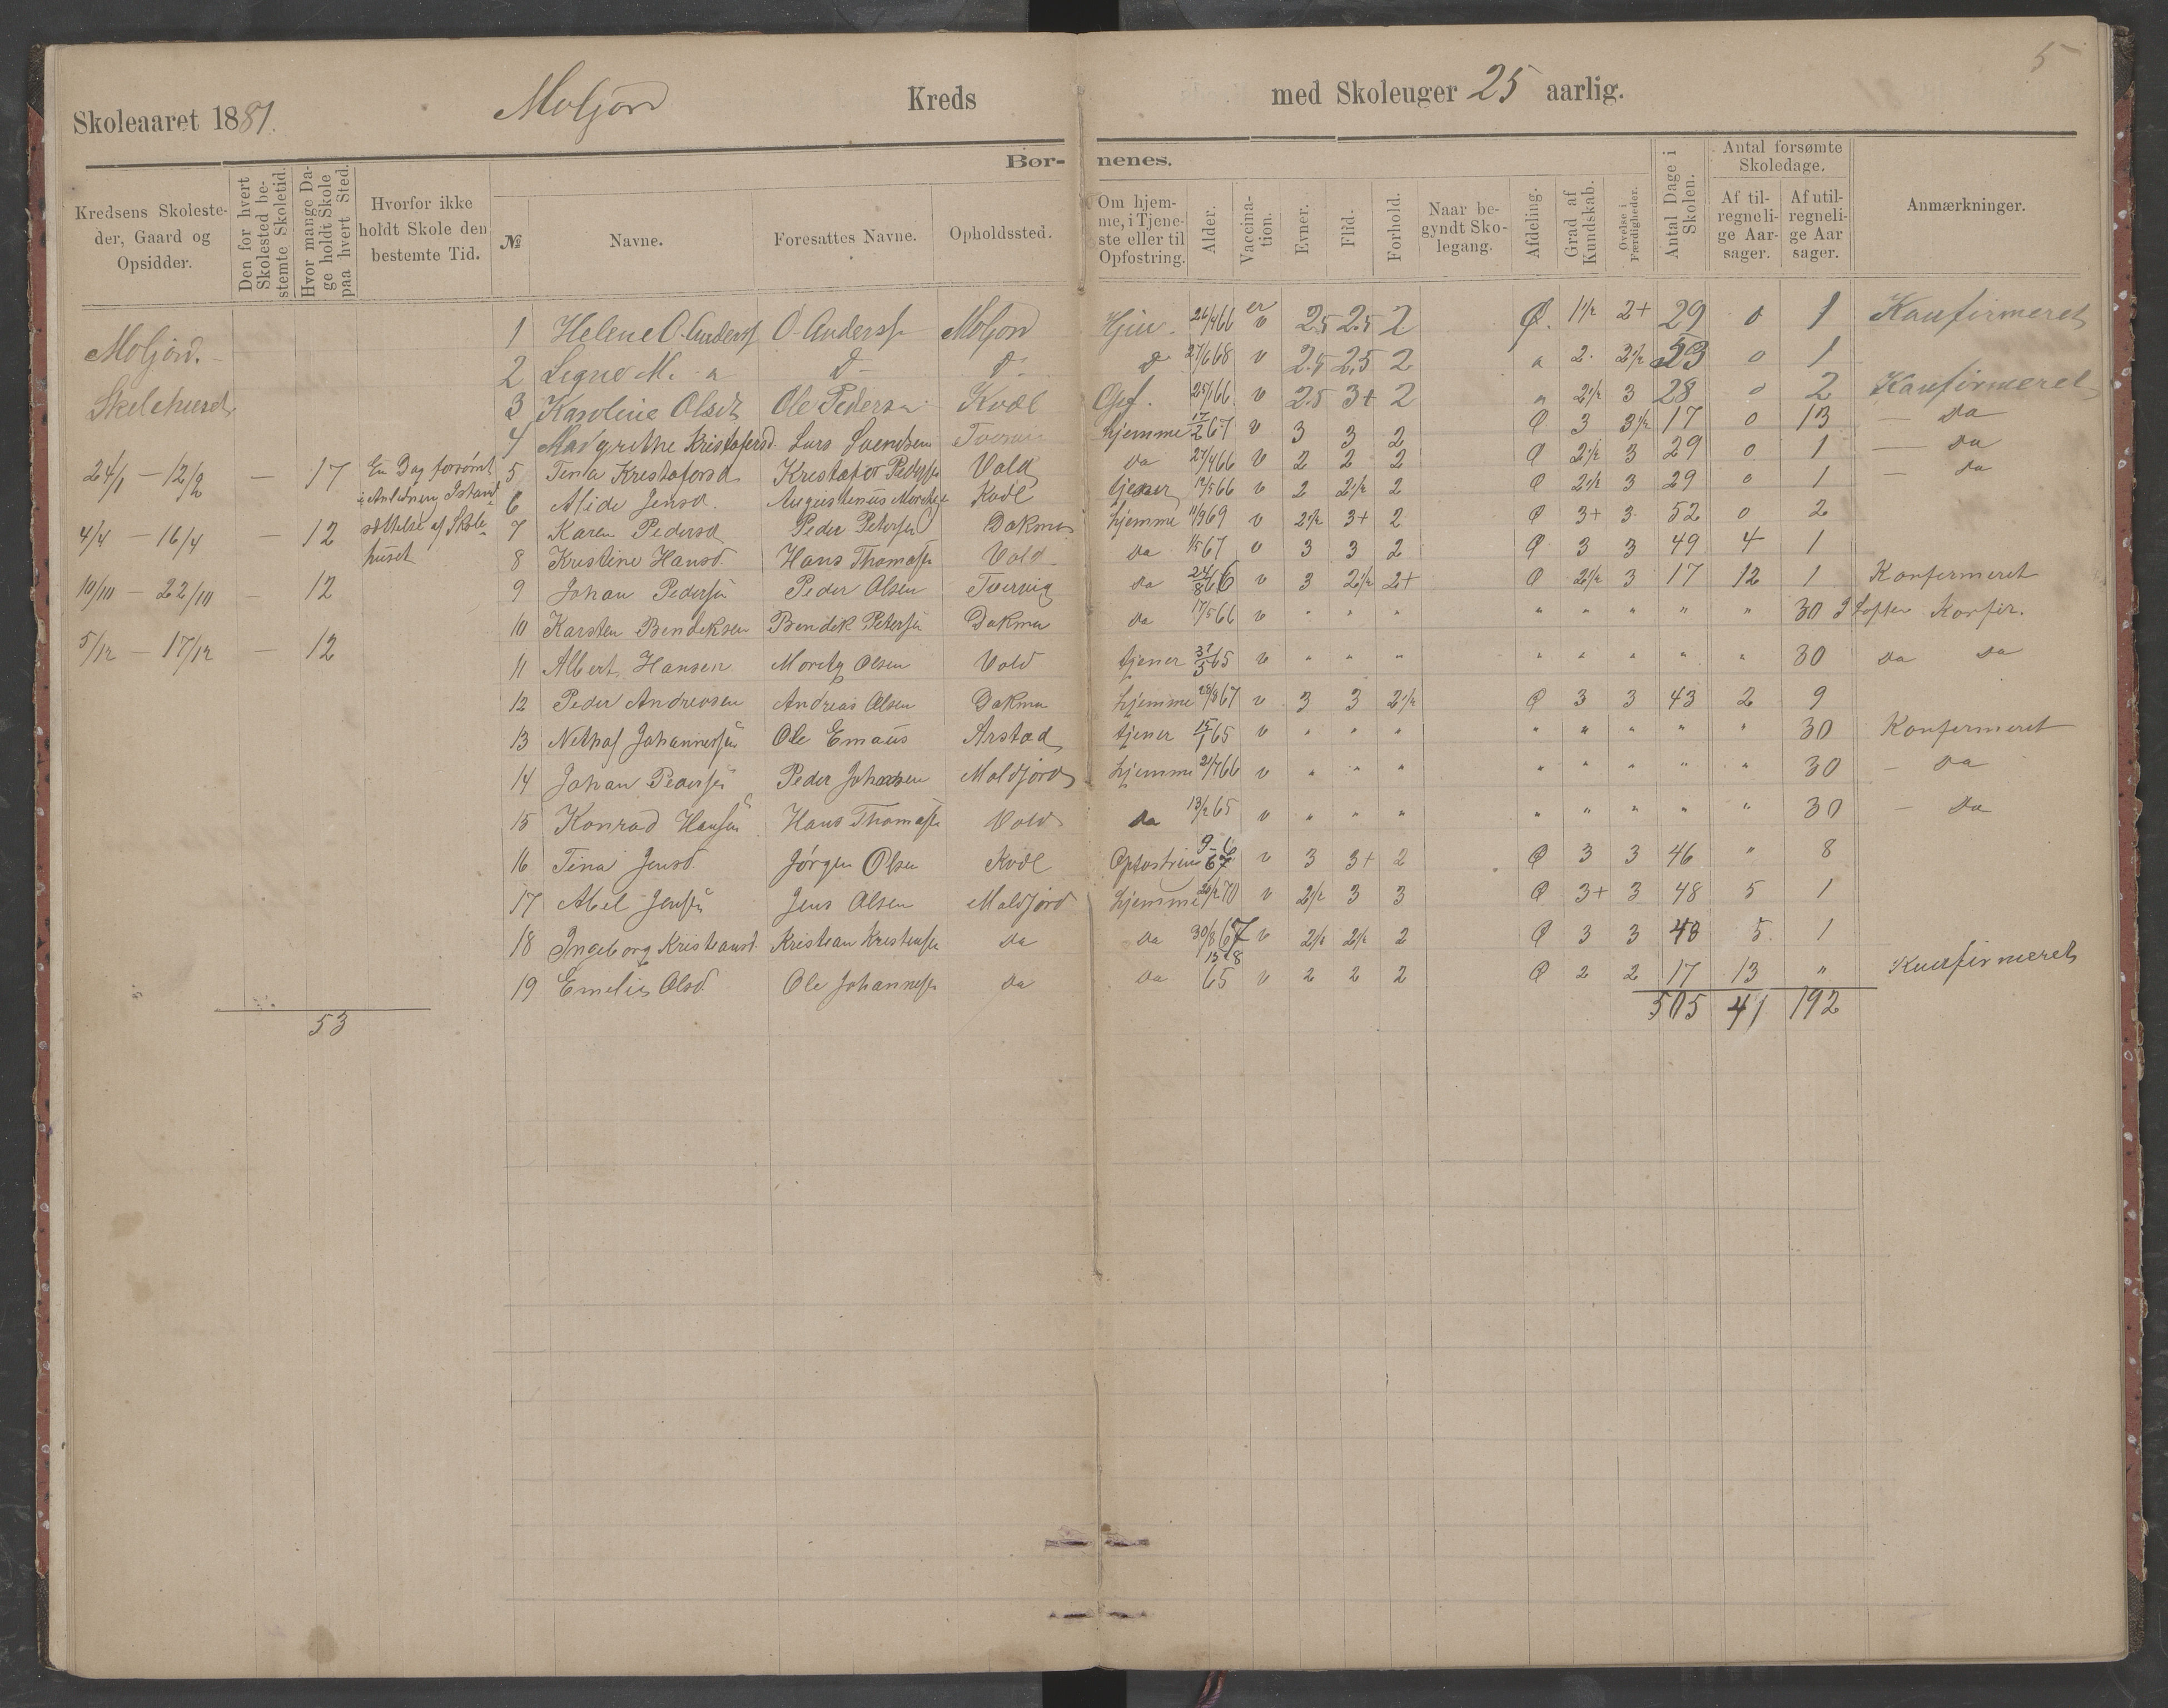 5
Skoleaaret 1881. Moljord Kreds med Skoleuger 25 aarlig.
Bør- nenes.
Kredsens Skoleste-
der, Gaard og
Opsidder.
Den for hvert
Skolested be-
stemte Skoletid.
Hvor mange Da-
ge holdt Skole
paa hvert Sted.
Hvorfor ikke
holdt Skole den
bestemte Tid.
№
Navne.
Foresattes Navne.
Opholdssted.
Om hjem-
me, i Tjene-
ste eller til
Opfostring.
Alder.
Vaccina-
tion.
Evner.
Flid.
Forhold.
Naar be-
gyndt Sko-
legang.
Afdeling.
Grad af
Kundskab.
Øvelse i
Færdigheder.
Antal Dage i
Skolen.
Antal forsømte
Skoledage.
Af til-
regneli-
ge Aar-
sager.
Af util-
regneli-
ge Aar
sager.
Anmærkninger.
Moljord.
Skolehuset
24/1 - 12/2 - 17
4/4 - 16/4 - 12
10/10 - 22/10 - 12
5/12 - 17/12 - 12
53
En Dag forsømt
i Anledning Istand
sættelse af Skole
huset
1 Helene O. Anderss O. Anderss Moljord Hjem. 26/4 66 v 2.5 2.5 2 Ø. 1 1/2 2+ 29 0 1 Konfirmeret
2 Signe M. " D- D- D 27/6 68 v 2.5 2.5 2 " 2. 2 1/2 53 0 1
3 Karoline Olsdt Ole Peders Kvæl Opf. 25/ 66 v 2.5 3+ 2 " 2 1/2 3 28 0 2 Konfirmeret
4 Margrethe Kristofersd. Lars Svendsen Tvervig hjemme 17/2 67 v 3 3 2 Ø 3 3 1/2 17 0 13 - Da
5 Tinla Kristofersd Kristofer Peders Vold Da 27/4 66 v 2 2 2 Ø 2 1/2 3 29 0 1 - Da
6 Alide Jensd. Augustenus Kvæl tjener 12/5 66 v 2 2 1/2 2 Ø 2 1/2 3 29 0 1 - Da
7 Karen Pedersd Peder Petersen Dokmo hjemme 11/9 69 v 2 1/2 3+ 2 Ø 3+ 3 52 0 2
8 Kristine Hansd. Hans Thomass Vold Da 1/5 67 v 3 3 2 Ø 3 3 49 4 1
9 Johan Pedersen Peder Olsen Tvervig Da 24/8 66 v 3 2 1/2 2+ Ø 2 1/2 3 17 12 1 Konfermeret
10 Karsten Bendiksen Bendik Petersen Dokmo Da 17/5 66 v " " " " " " " " 30 Konfir.
11 Albert Hansen Moritz Olsen Vold tjener 31/5 65 v " " " " " " " " 30 Da Da
12 Peder Andreasen Andreas Olsen Dokmo hjemme 28/8 67 v 3 3 2 1/2 Ø 3 3 43 2 9
13 Johannessen Ole Emaus Arstad tjener 15/1 65 v " " " " " " " " 30 Konfermeret
14 Johan Pedersen Peder Johansen Moldjord hjemme 21/7 66 v " " " " " " " " 30 - Da
15 Konrad Hansen Hans Thomass Vold Da 13/2 65 v " " " " " " " " 30 - Da
16 Tina Jensd. Jørgen Olsen Kvæl Opfostring 9-6 67 v 3 3+ 2 Ø 3 3 46 " 8
17 Abel Jensen Jens Olsen Moldjord hjemme 20/2 70 v 2 1/2 3 3 Ø 3+ 3 48 5 1
18 Ingeborg Kristiansd. Kristian Kristensen Da Da 30/8 67 v 2 1/2 2 1/2 2 Ø 3 3 48 5 1
19 Emelie Olsd. Ole Johannes Da Da 15-8 65 v 2 2 2 Ø 2 2 17 13 " Konfirmeret
505 41 192